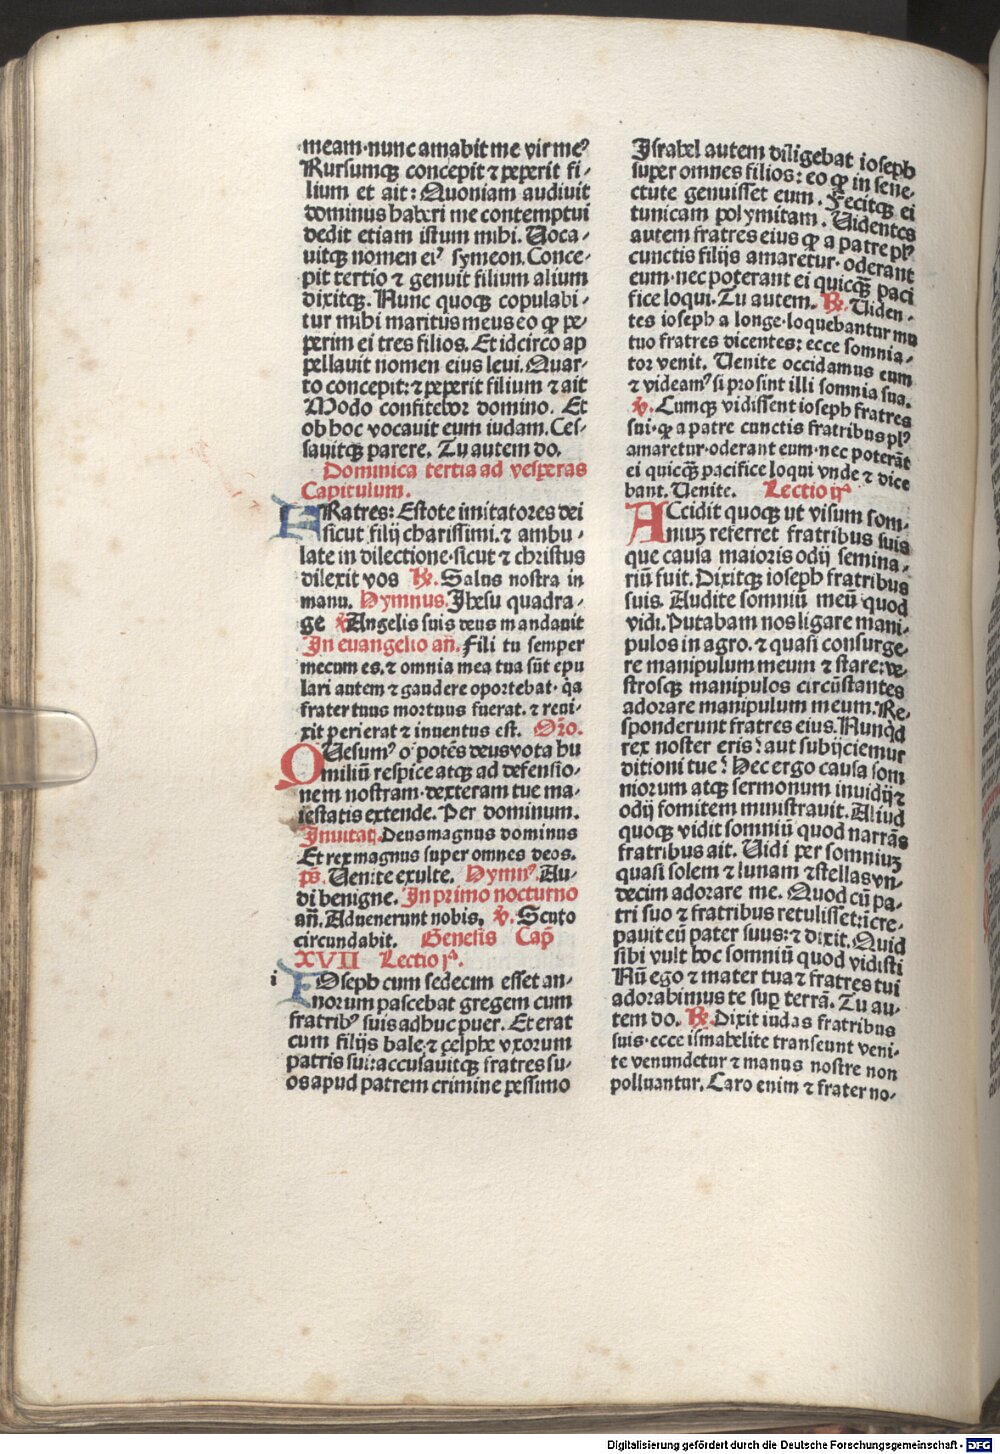 meam·nunc amabit me vir meꝰ
Rursumqꝫ concepit ⁊ peperit fi⸗
lium et ait: Quoniam audiuit
dominus haberi me contemptui
dedit etiam istum mihi. Uoca⸗
uitqꝫ nomen eiꝰ symeon. Conce⸗
pit tertio ⁊ genuit filium alium
dixitqꝫ. Nunc quoqꝫ copulabi⸗
tur mihi maritus meus eo ꝙ pe⸗
perim ei tres filios. Et idcirco ap
pellauit nomen eius leui. Quar⸗
to concepit: ⁊ peperit filium ⁊ ait
Modo confitebor domino. Et
ob hoc vocauit eum iudam. Ces⸗
sauitqꝫ parere. Tu autem do.
Dominica tertia ad vesperas
Capitulum.
FRatres: Estote imitatores dei
sicut filij charissimi. ⁊ ambu⸗
late in dilectione·sicut ⁊ christus
dilexit vos ℟. Salus nostra in
manu. Hymnus. Ihesu quadra⸗
ge ℣ Angelis suis deus mandauit
In euangelio añ. Fili tu semper
mecum es. ⁊ omnia mea tua sũt epu
lari autem ⁊ gaudere oportebat· q̃a
frater tuus mortuus fuerat. ⁊ reui⸗
xit perierat ⁊ inuentus est. Or̃o.
QUesumꝰ o potẽs deus vota hu
miliũ respice atqꝫ ad defensio⸗
nem nostram·dexteram tue ma⸗
iestatis extende. Per dominum.
Inuitat̃. Deus magnus dominus
Et rex magnus super omnes deos.
p̃s. Uenite exulte. Hymnꝰ. Au⸗
di benigne. In primo nocturno
añ. Aduenerunt nobis. ℣. Scuto
circundabit. Genesis Cap̃
XVII Lectio jᵃ.
i
IOseph cum sedecim esset an⸗
norum pascebat gregem cum
fratribꝰ suis adhuc puer. Et erat
cum filijs bale·⁊ çelphe vxorum
patris sui: accusauitqꝫ fratres su⸗
os apud patrem crimine pessimo
Israhel autem diligebat ioseph
super omnes filios: eo ꝙ in sene⸗
ctute genuisset eum. Fecitqꝫ ei
tunicam polymitam. Uidentes
autem fratres eius ꝙ a patre plꝰ
cunctis filijs amaretur·oderant
eum·nec poterant ei quicqꝫ̃ paci
fice loqui. Tu autem. ℟. Uiden⸗
tes ioseph a longe·loquebantur mu
tuo fratres dicentes: ecce somnia⸗
tor venit. Uenite occidamus eum
⁊ videamꝰ si prosint illi somnia sua.
℣. Cumqꝫ vidissent ioseph fratres
sui·ꝙ a patre cunctis fratribus plꝰ
amaretur·oderant eum·nec poterãt
ei quicqꝫ̃ pacifice loqui vnde ⁊ dice
bant. Uenite. Lectio ijᵃ
ACcidit quoqꝫ ut visum som⸗
niuꝫ referret fratribus suis
que causa maioris odij semina⸗
riũ fuit. Dixitqꝫ ioseph fratribus
suis. Audite somniũ meũ quod
vidi. Putabam nos ligare mani⸗
pulos in agro. ⁊ quasi consurge⸗
re manipulum meum ⁊ stare: ve⸗
strosqꝫ manipulos circũstantes
adorare manipulum meum. Re⸗
sponderunt fratres eius. Nunq̃d
rex noster eris? aut subijciemur
ditioni tue? Hec ergo causa som
niorum atqꝫ sermonum inuidij ⁊
odij fomitem ministrauit. Aliud
quoqꝫ vidit somniũ quod narrãs
fratribus ait. Uidi per somniuꝫ
quasi solem ⁊ lunam ⁊ stellas vn⸗
decim adorare me. Quod cũ pa⸗
tri suo ⁊ fratribus retulisset: icre⸗
pauit eũ pater suus: ⁊ dixit. Quid
sibi vult hoc somniũ quod vidisti
Nũ ego ⁊ mater tua ⁊ fratres tui
adorabimus te sup̱ terrã. Tu au⸗
tem do. ℟. Dixit iudas fratribus
suis·ecce ismahelite transeunt veni⸗
te venundetur ⁊ manus nostre non
polluantur. Caro enim ⁊ frater no⸗
Digitalisierung gefördert durch die Deutsche Forschungsgemeinschaft - DFG